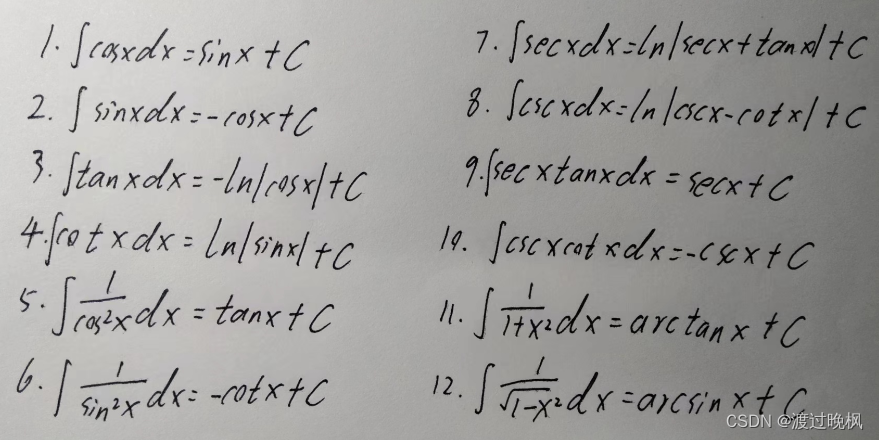 1. ∫cosxdx=sinx+C
2. ∫sinxdx=-cosx+C
3. ∫tanxdx=-ln|cosx|+C
4. ∫cotxdx=ln|sinx|+C
5. ∫1/cos²x dx=tanx+C
6. ∫1/sin²x dx=-cotx+C
7. ∫secxdx=ln|secx+tanx|+C
8. ∫cscxdx=ln|cscx-cotx|+C
9. ∫secxtanxdx=secx+C
10. ∫cscxcotxdx=-cscx+C
11. ∫1/(1+x²)dx=arctanx+C
12. ∫1/√(1-x²)dx=arcsinx+C
CSDN @渡过晚枫